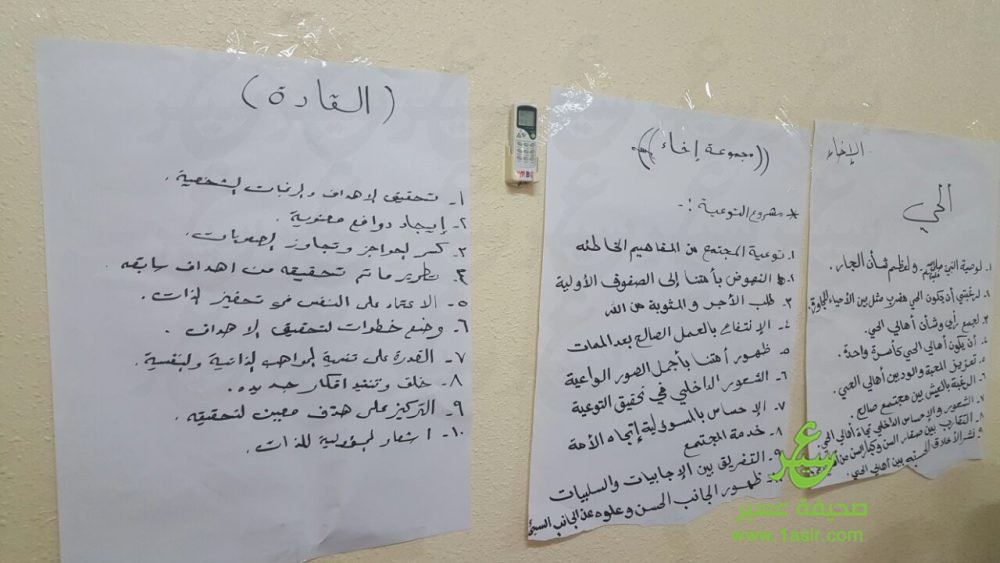 ( القادة )
١- تحقيق الاهداف والرغبات الشخصية .
٢- إيجاد دوافع معنوية .
٣- كسر الحواجز وتجاوز الصعوبات .
٤- تطوير ما تم تحقيقه من اهداف سابقه
٥- الاعتماد على النفس في تحفيز الذات .
٦- وضع خطوات لتحقيق الاهداف .
٧- القدرة على تنمية المواهب الذاتية والنفسية .
٨- خلف وتنفيذ افكار جديده .
٩- التركيز على هدف معين لتحقيقه .
١٠- اشعار المسؤولية للذات .
(( مجموعة إخاء ))
* مشروع التوعية :-
١. توعية المجتمع من المفاهيم الخاطئه
٢. النهوض بأمتنا إلى الصفوف الأولية
٣. طلب الأجر و المثوبة من الله
٤. الإنتفاع بالعمل الصالح بعد الممات
٥. ظهور أمتنا بأجمل الصور الواعية
٦. الشعور الداخلي في تحقيق التوعية
٧. الإحساس بالمسولية إتجاه الأمة
٨. خدمة المجتمع
٩. التفريق بين الإجابيات والسلبيات
ظهور الجانب الحسن وعلوه عن الجانب السيئ
الإخاء
الحي
١. لوصية النبي صلى الله عليه وسلم ولعظم شأن الجار .
٢. لرغبتي أن يكون الحي مضرب مثل بين الأحياء المجاورة .
٣. لجمع رأي وشأن أهالي الحي .
٤. أن يكون أهالي الحي كأسرة واحدة .
٥. تعزيز المحبة والود بين أهالي الحي .
٦. الرغبة بالعيش بين مجتمع صالح .
٧. الشعور والإحساس الداخلي تجاه أهالي الحي .
٨. التقارب بين صغار السن وكبار السن من
٩. نشر الأخلاق الحسنه بين أهالي الحي .
عسير
صحيفة عسير
www.1asir.com